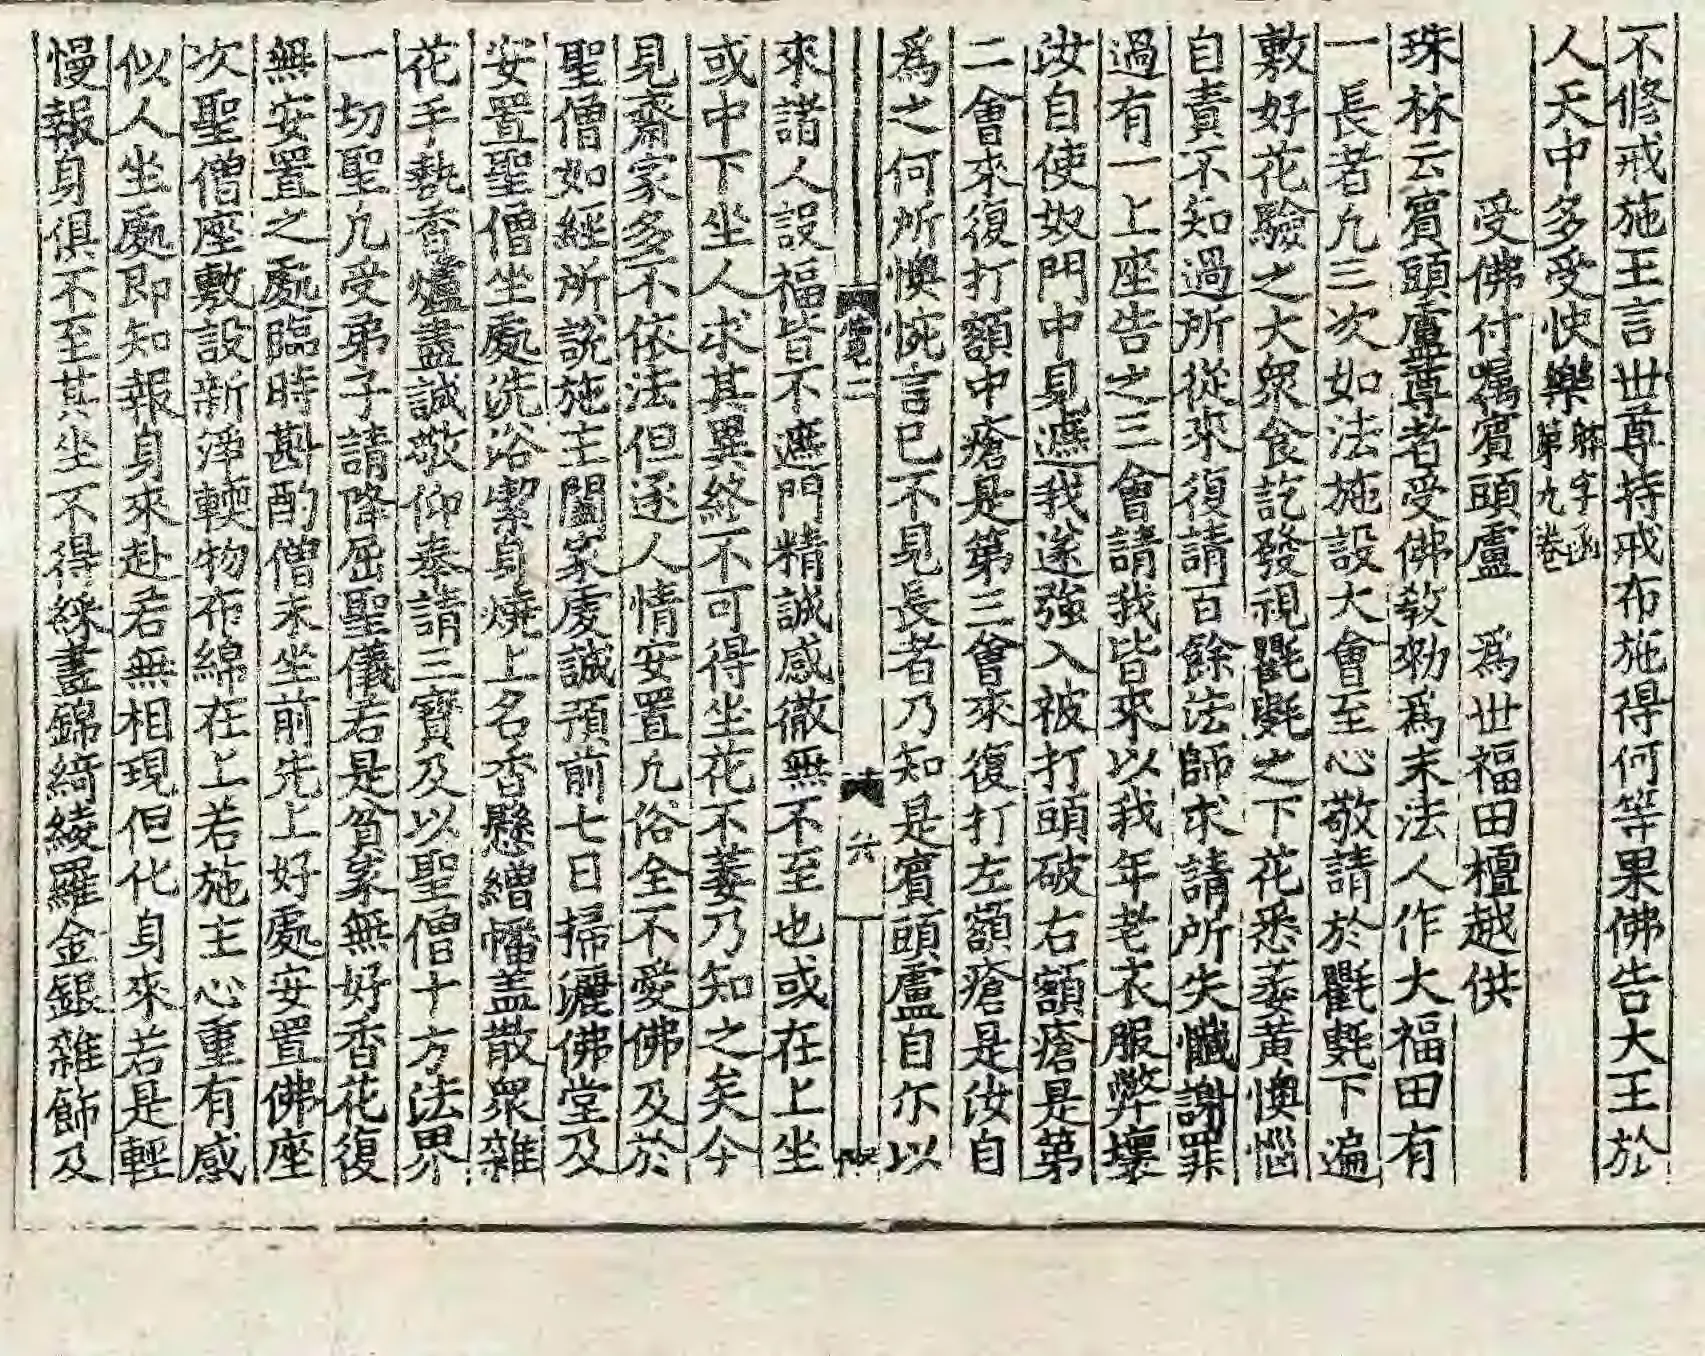 不修戒施王言世尊持戒布施得何等果佛告大王於
人天中多受快樂
觧字函
第九卷
受佛付囑賔頭盧　爲世福田檀越供
珠林云賔頭盧尊者受佛敎勑爲末法人作大福田有
一長者凢三次如法施設大會至心敬請於氍𣯜下遍
敷好花驗之大衆食訖發視氍𣯜之下花悉萎黃懊惱
自責不知過所從來復請百餘法師求請所失懴謝罪
過有一上座告之三會請我皆來以我年老衣服弊壞
汝自使奴門中見遮我遂強入被打頭破右額瘡是第
二會來復打額中瘡是第三會來復打左額瘡是汝自
爲之何所懊惋言已不見長者乃知是賔頭盧自尒以
覽二
六
來諸人設福皆不遮門精誠感徹無不至也或在上坐
或中下坐人求其異終不可得坐花不萎乃知之矣今
見齋家多不依法但逐人情安置凢俗全不愛佛及於
聖僧如經所說施主闔家䖍誠預前七日掃灑佛堂及
安置聖僧坐處洗浴潔身燒上名香懸繒幡盖散衆雜
花手執香爐盡誠敬仰奉請三寶及以聖僧十方法界
一切聖凢受弟子請降屈聖儀若是貧家無好香花復
無安置之處臨時斟酌僧未坐前先上好處安置佛座
次聖僧座敷設新淨輭物布綿在上若施主心重有感
似人坐處即知報身來赴若無相現但化身來若是輕
慢報身俱不至其坐不得綵畫錦綺綾羅金銀雜飾及